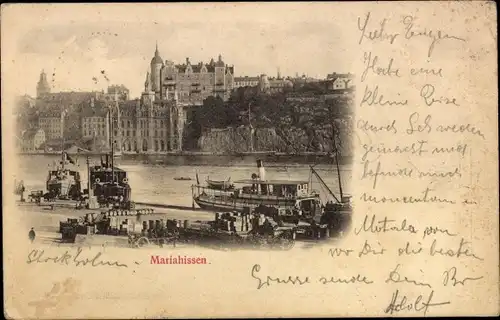 Lieber Eugen
Habe eine
kleine Reise
durch Schweden
gemacht und
befinde mich
momentan in
Metala von
wo Dir die besten
Grüsse sendet Dein Br
Adolf
Stockholm
Mariahissen.